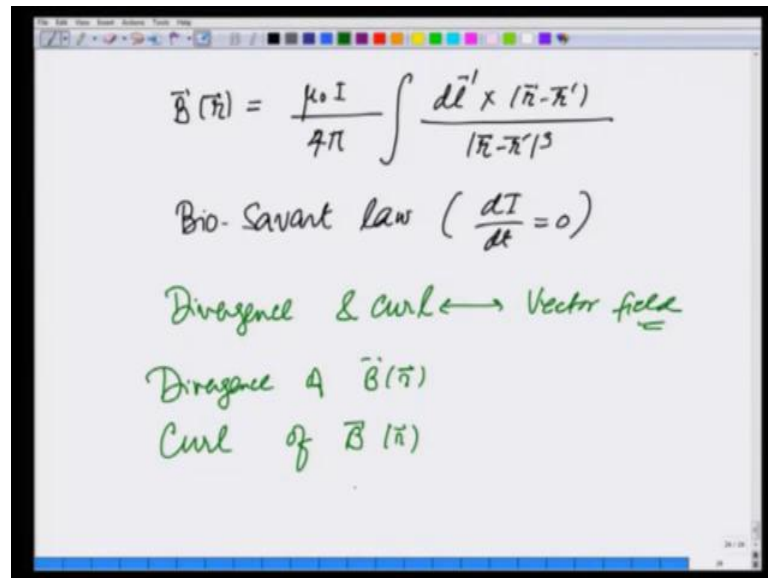 File Edit View Insert Actions Tools Help
B⃗(r⃗) = μ₀I / 4π ∫ dl⃗' × (r⃗-r⃗') / |r⃗-r⃗'|³
Bio-Savart law ( dI/dt = 0 )
Divergence & curl ⟷ Vector field
Divergence of B⃗(r⃗)
Curl of B⃗(r⃗)